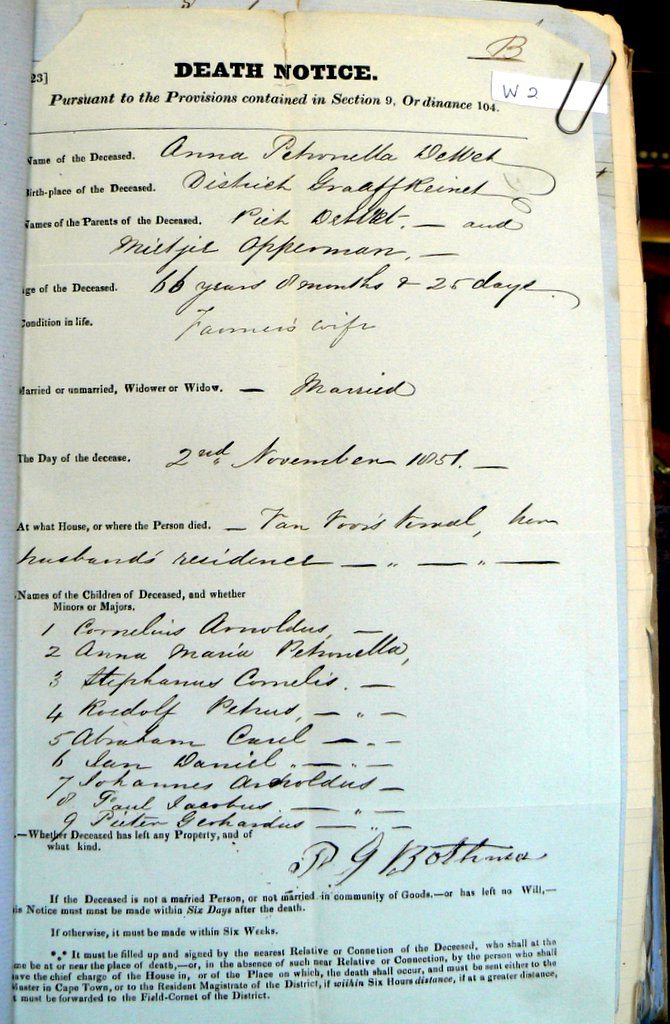 B
W 2
23]
DEATH NOTICE.
Pursuant to the Provisions contained in Section 9, Ordinance 104.
Name of the Deceased. Anna Petronella DeWet
Birth-place of the Deceased. District Graaff Reinet
Names of the Parents of the Deceased. Piet DeWet, — and
Mietjie Opperman, —
ge of the Deceased. 66 years 8 months & 25 days
Condition in life. Farmer's wife
Married or unmarried, Widower or Widow. — Married
The Day of the decease. 2nd November 1851. —
At what House, or where the Person died. — Van her
husband's residence — „ — „ —
Names of the Children of Deceased, and whether
Minors or Majors.
1 Cornelius Arnoldus, —
2 Anna Maria Petronella,
3 Stephanus Cornelis. —
4 Roedolf Petrus, — „ —
5 Abraham Carel — „ —
6 Jan Daniel „ — „ —
7 Johannes Arnoldus —
8 Paul Jacobus. — „ —
9 Pieter Gerhardus — „ —
.—Whether Deceased has left any Property, and of
what kind.
P G Bothma
If the Deceased is not a married Person, or not married in community of Goods.—or has left no Will,—
is Notice must most be made within Six Days after the death.
If otherwise, it must be made within Six Weeks.
*** It must be filled up and signed by the nearest Relative or Connetion of the Deceased, who shall at the
me be at or near the place of death,—or, in the absence of such near Relative or Connection, by the person who shall
ave the chief charge of the House in, or of the Place on which, the death shall occur, and must be sent either to the
Master in Cape Town, or to the Resident Magistrate of the District, if within Six Hours distance, if at a greater distance,
t must be forwarded to the Field-Cornet of the District.